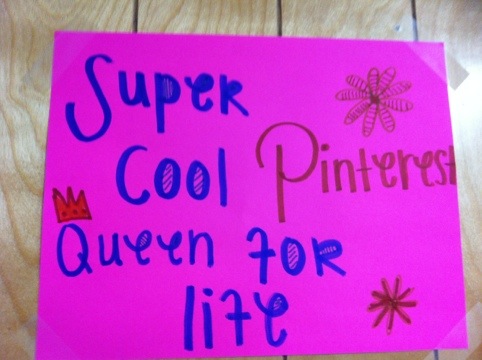 Super
Cool Pinterest
Queen for
life